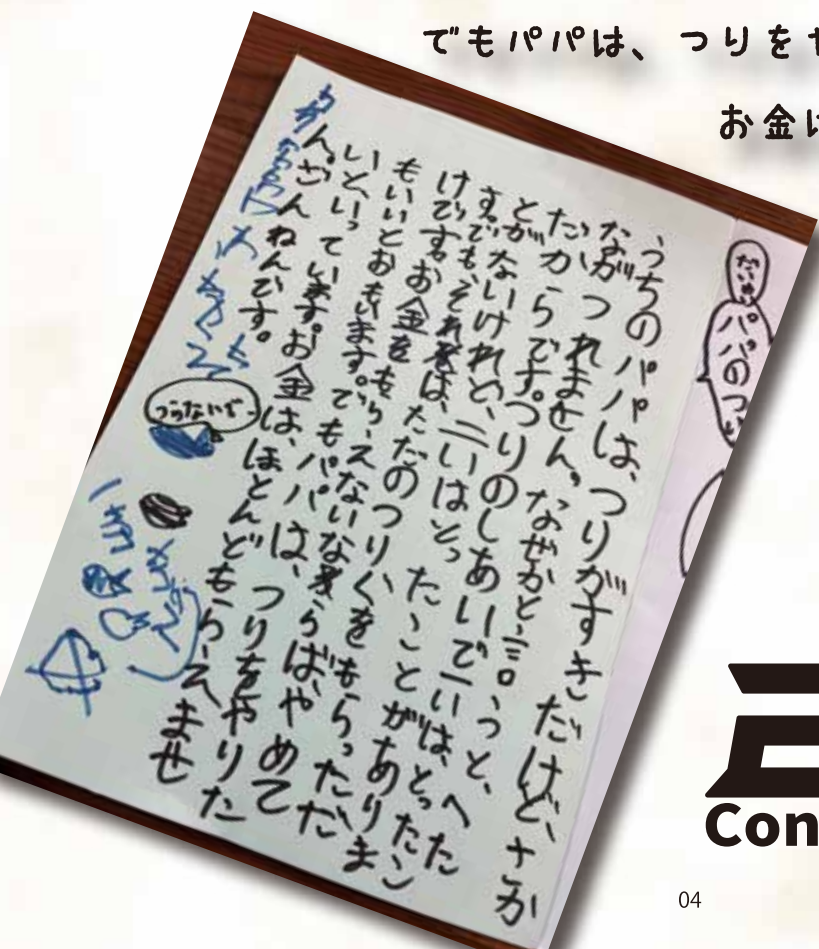 でもパパは、つりを
お金
パパのつ
うちのパパは、つりがすきだけど、さか
ながつれません。なぜかと言うと、へた
だからです。つりのしあいで一いは、とったこ
とがないけれど、二いはとったことがありま
す。でも、それは、ただのつりぐをもらっただ
けです。お金をもらえないならば、やめて
もいいとおもいます。でもパパは、つりをやりた
いといっています。お金は、ほとんどもらえませ
ん。ざんねんです。
つらないでー
Con
04